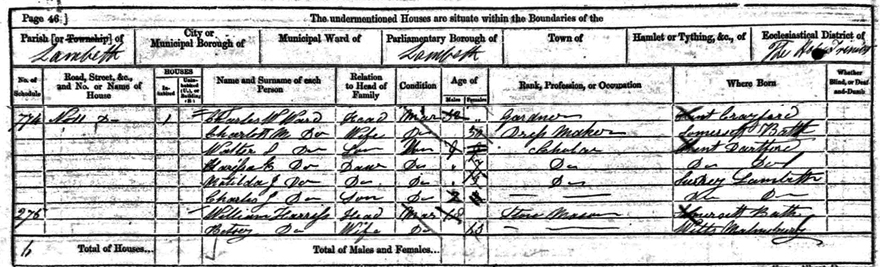 Page 46] The undermentioned Houses are situate within the Boundaries of the
Parish [or Township] of City or Municipal Borough of Municipal Ward of Parliamentary Borough of Town of Hamlet or Tything, &c., of Ecclesiastical District of
Lambeth Lambeth The Holy Trinity
No. of Schedule Road, Street, &c., and No. or Name of House HOUSES Inhabited Uninhabited (U.), or Building (B.) Name and Surname of each Person Relation to Head of Family Condition Age of Males Females Rank, Profession, or Occupation Where Born Whether Blind, or Deaf-and-Dumb
1 Charles W Ward Head Mar Gardner Kent Crayford
Charlott M Do Wife Do Dress Maker Somersett Bath
Walter Do Son Un Scholar Kent Dartford
Do Daur Do Do Do
Matilda J Do Do Do Surrey Lambeth
Charles Do Son Do Do Do
William Harriss Head Mar Stone Mason Somersett Bath
Betsey Do Wife Do Wilts Malmsbury
Total of Houses... Total of Males and Females...